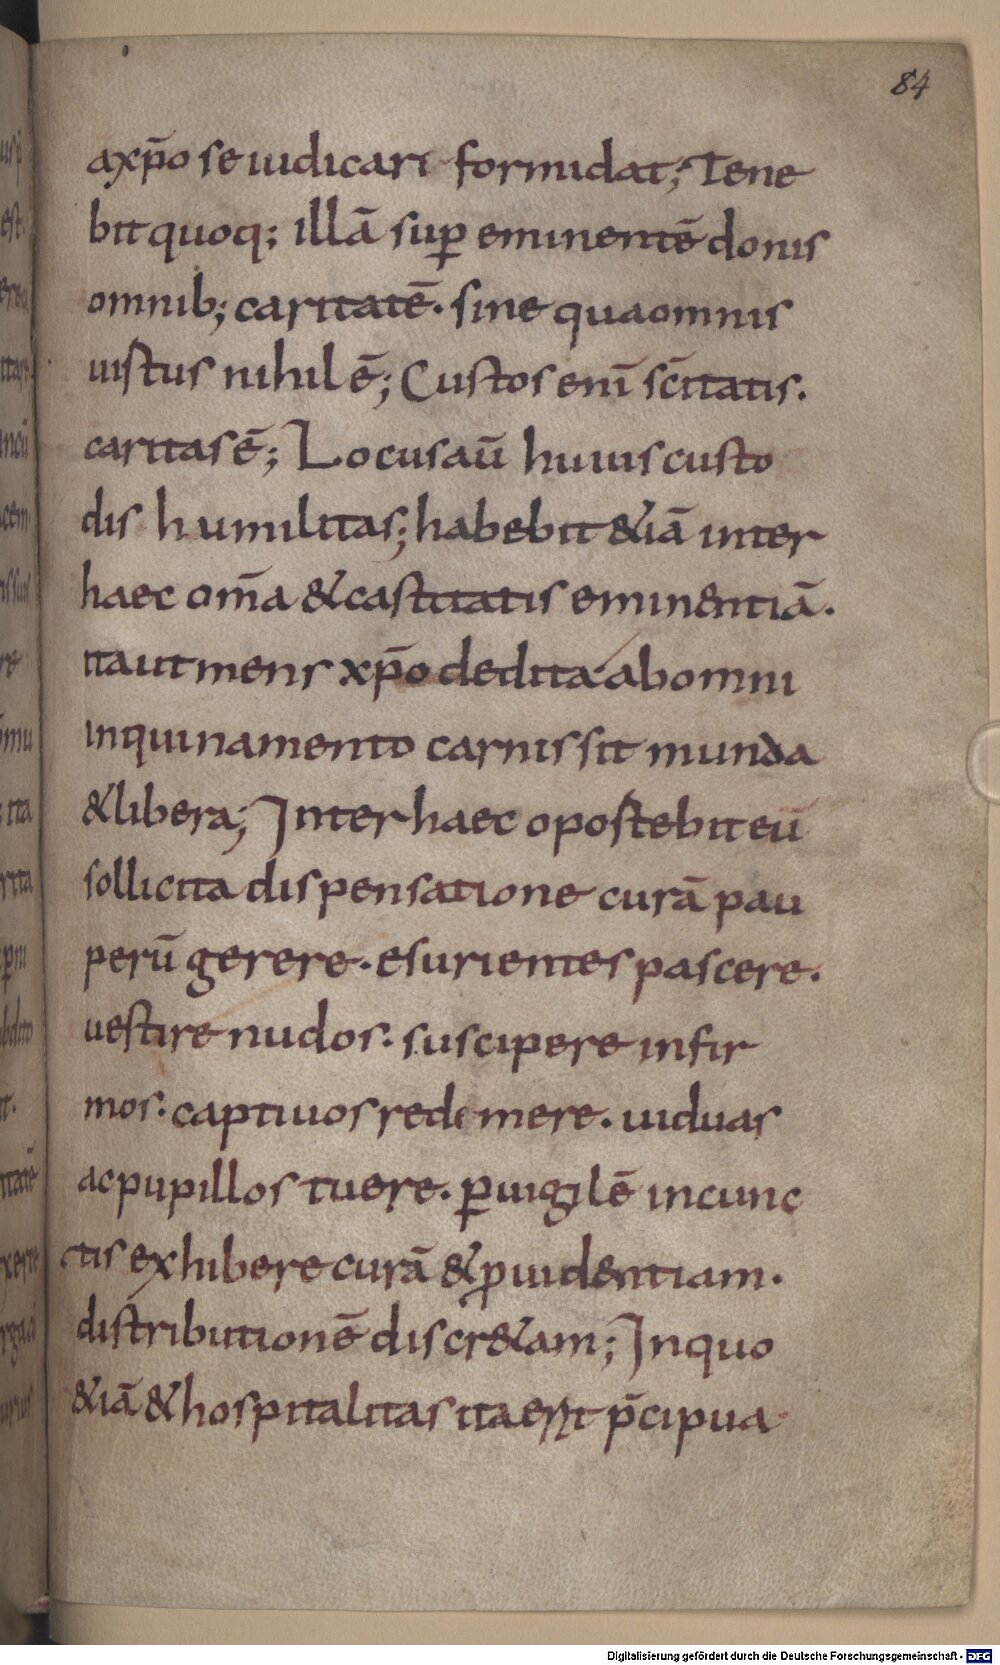 84
axp̄o se iudicari formidat; Tene
bit quoq; illā sup̱ eminentē donis
omnib; caritatē. sine qua omnis
uirtus nihil ē; Custos enī sc̄itatis.
caritas ē; Locus aū huius custo
dis humilitas; habebit &iā inter
haec om̄a & castitatis eminentiā.
ita ut mens xp̄o dedita ab omni
inquinamento carnis sit munda
& libera; Inter haec oportebit eū
sollicita dispensatione curā pau
perū gerere. esurientes pascere.
uestire nudos. suscipere infir
mos. captiuos redimere. uiduas
ac pupillos tuere. ꝑuigilē in cunc
ctis exhibere curā & ꝓuidentiam.
distributionē discr&am; In quo
&iā & hospitalitas ita erit p̄cipua
Digitalisierung gefördert durch die Deutsche Forschungsgemeinschaft - DFG